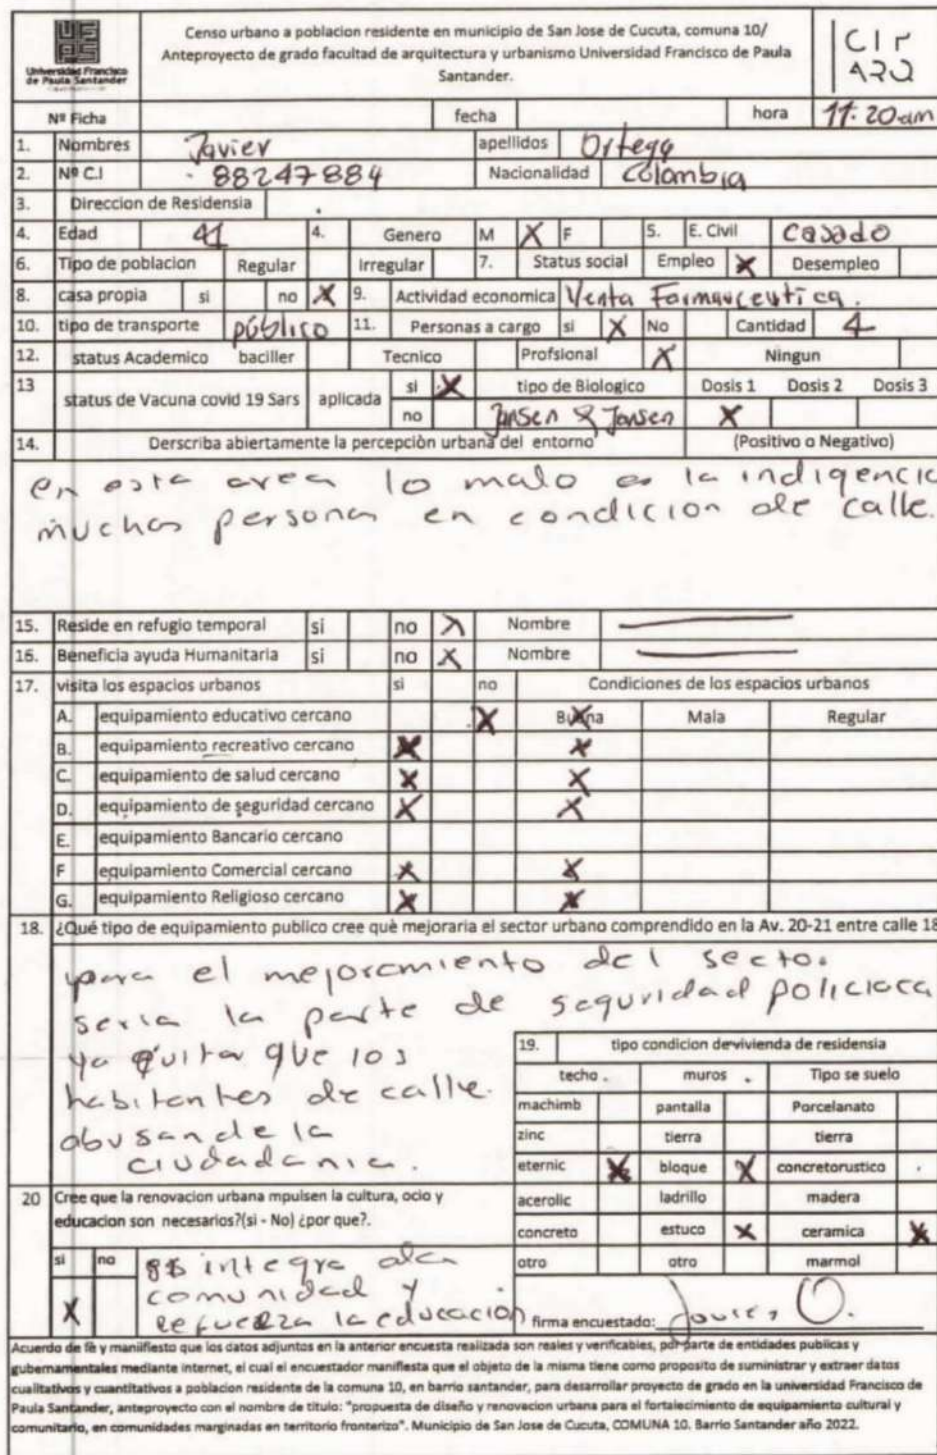 Universidad Francisco
de Paula Santander
Censo urbano a poblacion residente en municipio de San Jose de Cucuta, comuna 10/
Anteproyecto de grado facultad de arquitectura y urbanismo Universidad Francisco de Paula
Santander.
Nº Ficha fecha hora 11:20am
1. Nombres Javier apellidos Ortega
2. Nº C.I 88247884 Nacionalidad Colombia
3. Direccion de Residensia
4. Edad 41 4. Genero M X F 5. E. Civil casado
6. Tipo de poblacion Regular Irregular 7. Status social Empleo X Desempleo
8. casa propia si no X 9. Actividad economica Venta Farmauceutica.
10. tipo de transporte público 11. Personas a cargo si X No Cantidad 4
12. status Academico baciller Tecnico Profsional X Ningun
13 status de Vacuna covid 19 Sars aplicada si X tipo de Biologico Dosis 1 Dosis 2 Dosis 3
no Jansen & Jonsen X
14. Derscriba abiertamente la percepciòn urbana del entorno (Positivo o Negativo)
en esta area lo malo es la indigencia
muchas personas en condicion de calle.
15. Reside en refugio temporal si no X Nombre
16. Beneficia ayuda Humanitaria si no X Nombre
17. visita los espacios urbanos si no Condiciones de los espacios urbanos
A. equipamiento educativo cercano X Buena X Mala Regular
B. equipamiento recreativo cercano X X
C. equipamiento de salud cercano X X
D. equipamiento de seguridad cercano X X
E. equipamiento Bancario cercano
F equipamiento Comercial cercano X X
G. equipamiento Religioso cercano X X
18. ¿Qué tipo de equipamiento publico cree què mejoraria el sector urbano comprendido en la Av. 20-21 entre calle 18
para el mejoramiento del secto.
seria la parte de seguridad policiaca
ya quitar que los
habitantes de calle.
abusan de la
ciudadania.
19. tipo condicion de vivienda de residensia
techo . muros . Tipo se suelo
machimb pantalla Porcelanato
zinc tierra tierra
eternic X bloque X concretorustico
acerolic ladrillo madera
concreto estuco X ceramica X
otro otro marmol
20 Cree que la renovacion urbana mpulsen la cultura, ocio y
educacion son necesarios?(si - No) ¿por que?.
si no
X
integra a la
comunidad y
refuerza la educación
firma encuestado: Javier O.
Acuerdo de fè y maniifiesto que los datos adjuntos en la anterior encuesta realizada son reales y verificables, por parte de entidades publicas y
gubernamentales mediante internet, el cual el encuestador manifiesta que el objeto de la misma tiene como proposito de suministrar y extraer datos
cualitativos y cuantitativos a poblacion residente de la comuna 10, en barrio santander, para desarrollar proyecto de grado en la universidad Francisco de
Paula Santander, anteproyecto con el nombre de titulo: "propuesta de diseño y renovacion urbana para el fortalecimiento de equipamiento cultural y
comunitario, en comunidades marginadas en territorio fronterizo". Municipio de San Jose de Cucuta, COMUNA 10. Barrio Santander año 2022.